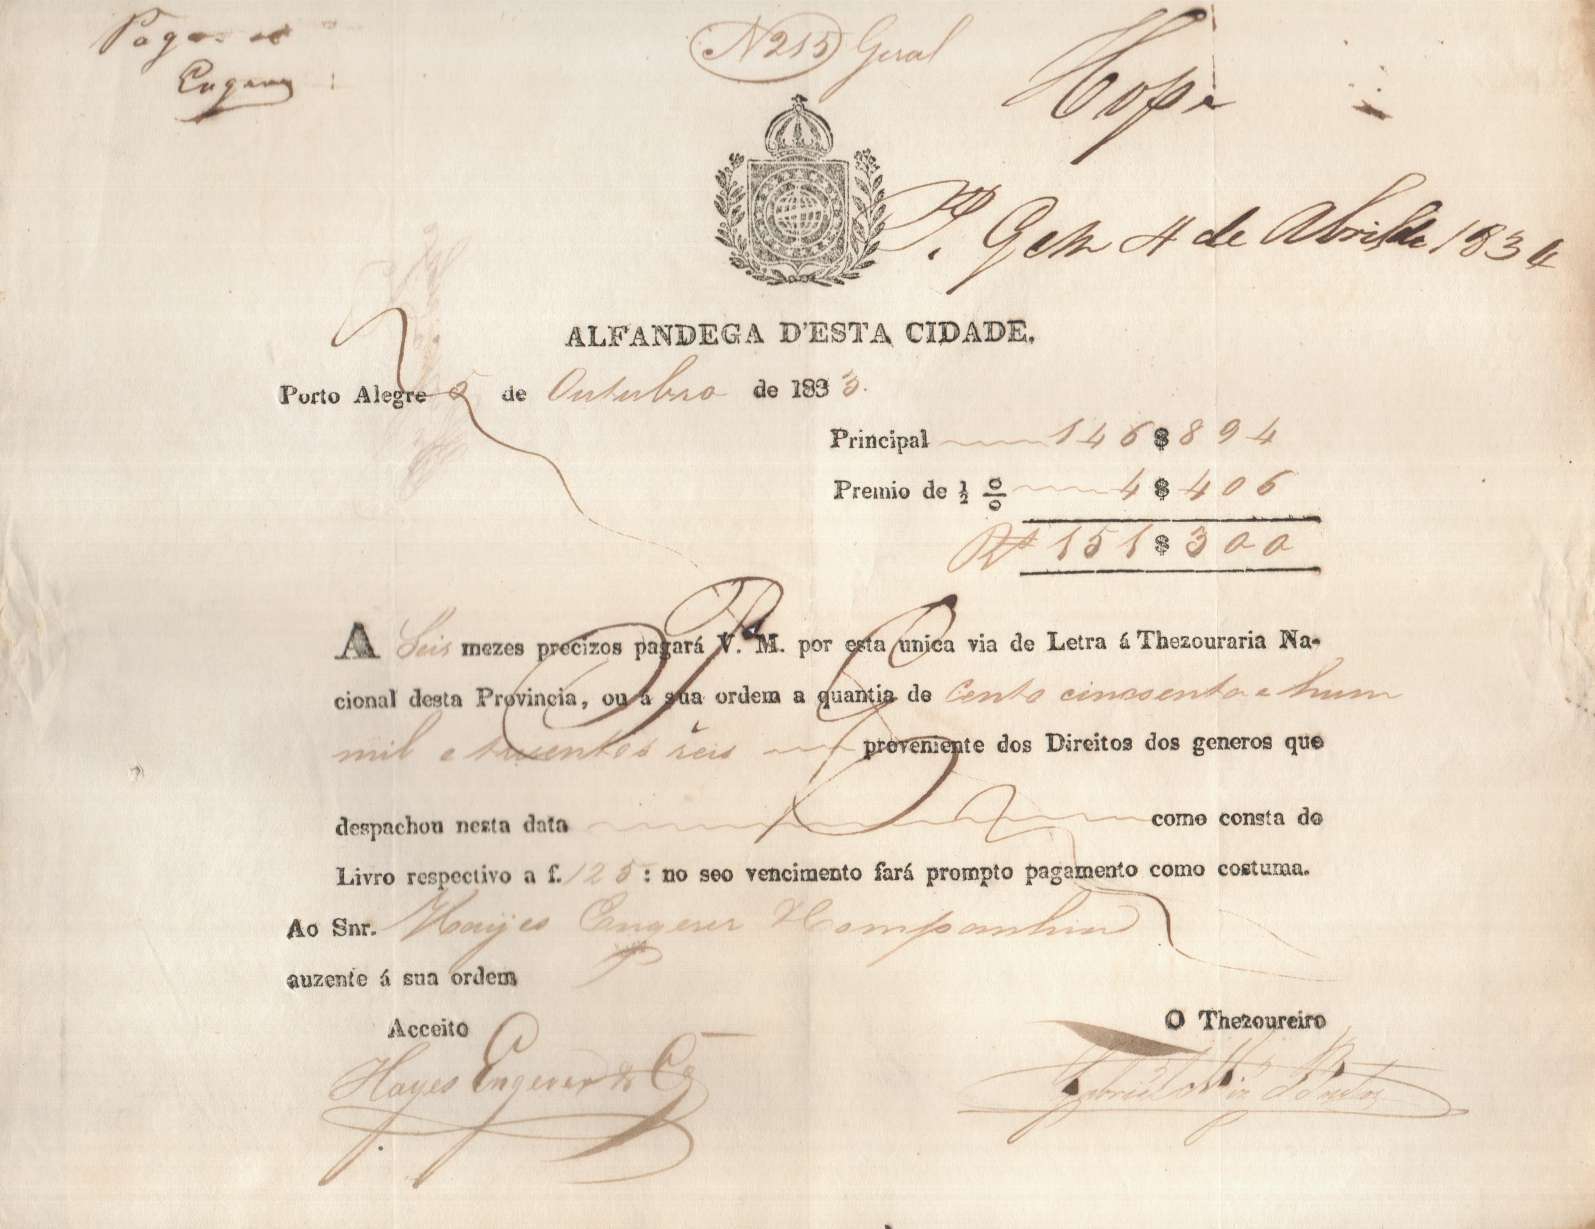 Nº 215 Geral
Hope
P. G em 4 de Abril de 1834
ALFANDEGA D'ESTA CIDADE.
Porto Alegre 5 de Outubro de 1833.
Principal 146$894
Premio de ½ 0/0 4$406
Rs 151$300
A Seis mezes precizos pagará V. M. por esta unica via de Letra á Thezouraria Na-
cional desta Provincia, ou á sua ordem a quantia de Cento cincoenta e hum
mil e trezentos réis proveniente dos Direitos dos generos que
despachou nesta data como consta do
Livro respectivo a f. 125: no seo vencimento fará prompto pagamento como costuma.
Ao Snr. Hayes Engerer & Companhia
auzente á sua ordem
Acceito
O Thezoureiro
Hayes Engerer & Cª
Gabriel